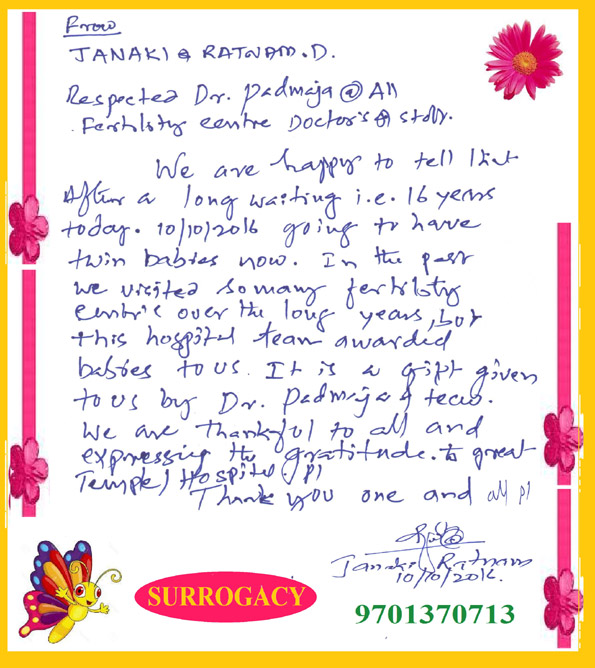 From
JANAKI & RATNAM.D.
Respected Dr. Padmaja @ All
Fertility centre Doctor's & staff.
We are happy to tell that
After a long waiting i.e. 16 years
today. 10/10/2016 going to have
twin babies now. In the past
we visited so many fertility
centr's over the long years, but
this hospital team awarded
babies to us. It is a gift given
to us by Dr. Padmaja & team.
We are thankful to all and
expressing the gratitude. to great
Temple / Hospital pl
Thank you one and all pl
Janaki Ratnam
10/10/2016.
SURROGACY
9701370713